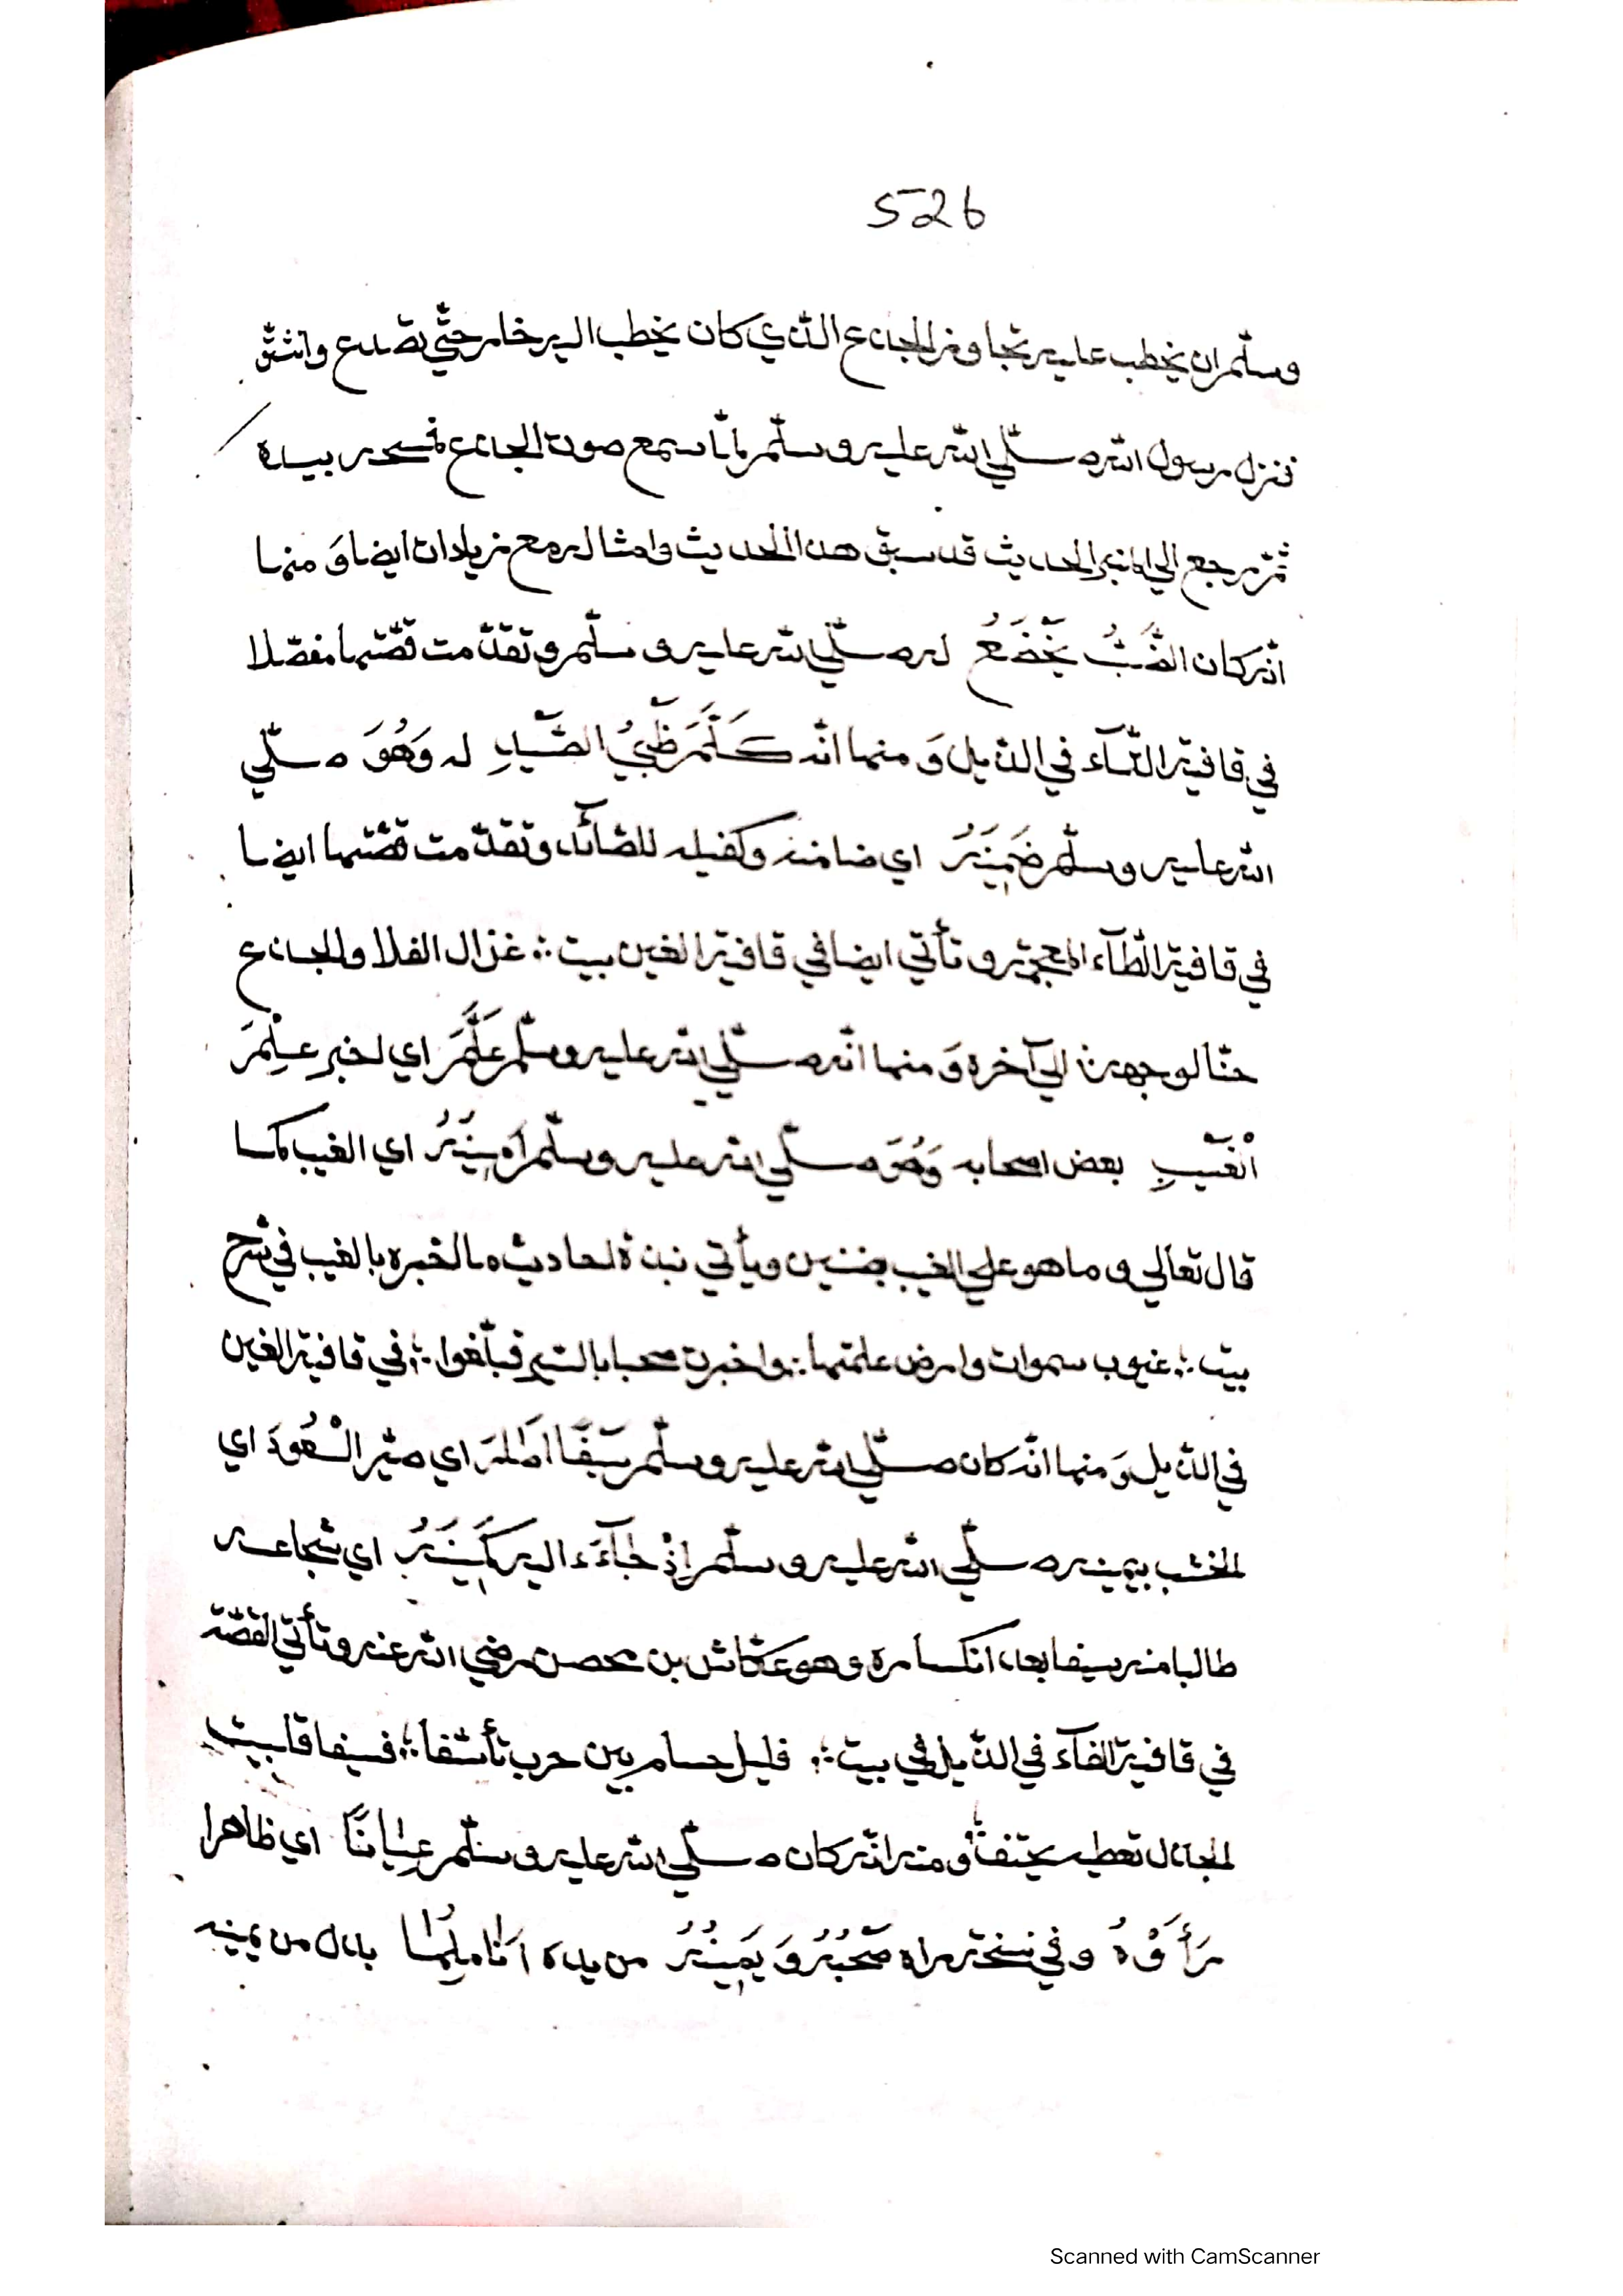 526
وسلّم ان يخطب عليه تجاوز الجذع الذي كان يخطب اليه خار حتّي تصدع وانشقّ
فنزل رسول الله صلّي الله عليه وسلّم لمّا سمع صوت الجذع فمسحه بيده
ثمّ رجع الي المنبر الحديث قد سبق هذا الحديث وامثاله مع زيادات ايضا وَ منها
انّه كان الضَّبُّ يَخْضَعُ له صلّي الله عليه وسلّم وتقدّمت قصّتها مفصّلا
في قافية التّآء في الذّيل وَ منها انّه كَلَّمَ ظَبْيُ الصَّيْدِ له وَهُوَ صلّي
الله عليه وسلّم ضَمِينُهُ اي ضامنه وكفيله للصّائد وتقدّمت قصّتها ايضا
في قافية الظّآء المعجمة وتأتي ايضا في قافية الغين بيت ؞ غزال الفلا والجذع
حنّا لوجهه الي آخره وَ منها انّه صلّي الله عليه وسلّم عَلَّمَ اي اخبر عِلْمَ
الْغَيْبِ بعض اصحابه وَهُوَ صلّي الله عليه وسلّم اَمِينُهُ اي الغيب كما
قال تعالي وما هو علي الغيب بضنين ويأتي نبذة احاديث ما اخبره بالغيب في شرح
بيت ؞ غيوب سموات وارض علمتها ؞ واخبرت صحبا بالّتي قبلّغوا ؞ في قافية الغين
في الذّيل وَ منها انّه كان صلّي الله عليه وسلّم سَيْفًا اَصَارَ اي صيّر الْعُودَ اي
الخشب بيمينه صلّي الله عليه وسلّم اِذْ جَآءَ اليه كَمِينُهُ اي شجاعه
طالبا منه سيفا بعد انكساره وهو عكّاش بن محصن رضي الله عنه وتأتي القصّة
في قافية الفآء في الذّيل في بيت ؞ فليل حسام بين حرب تأسّفا ؞ فسيفا قلبت
الجذل تعطيه وَ منه انّه كان صلّي الله عليه وسلّم عِيَانًا اي ظاهرا
رَأَوْهُ وفي نسخة رراه صَحْبُهُ وَ يَمِينُهُ من يده اَنَامِلُهَا بدل من يمينه
Scanned with CamScanner